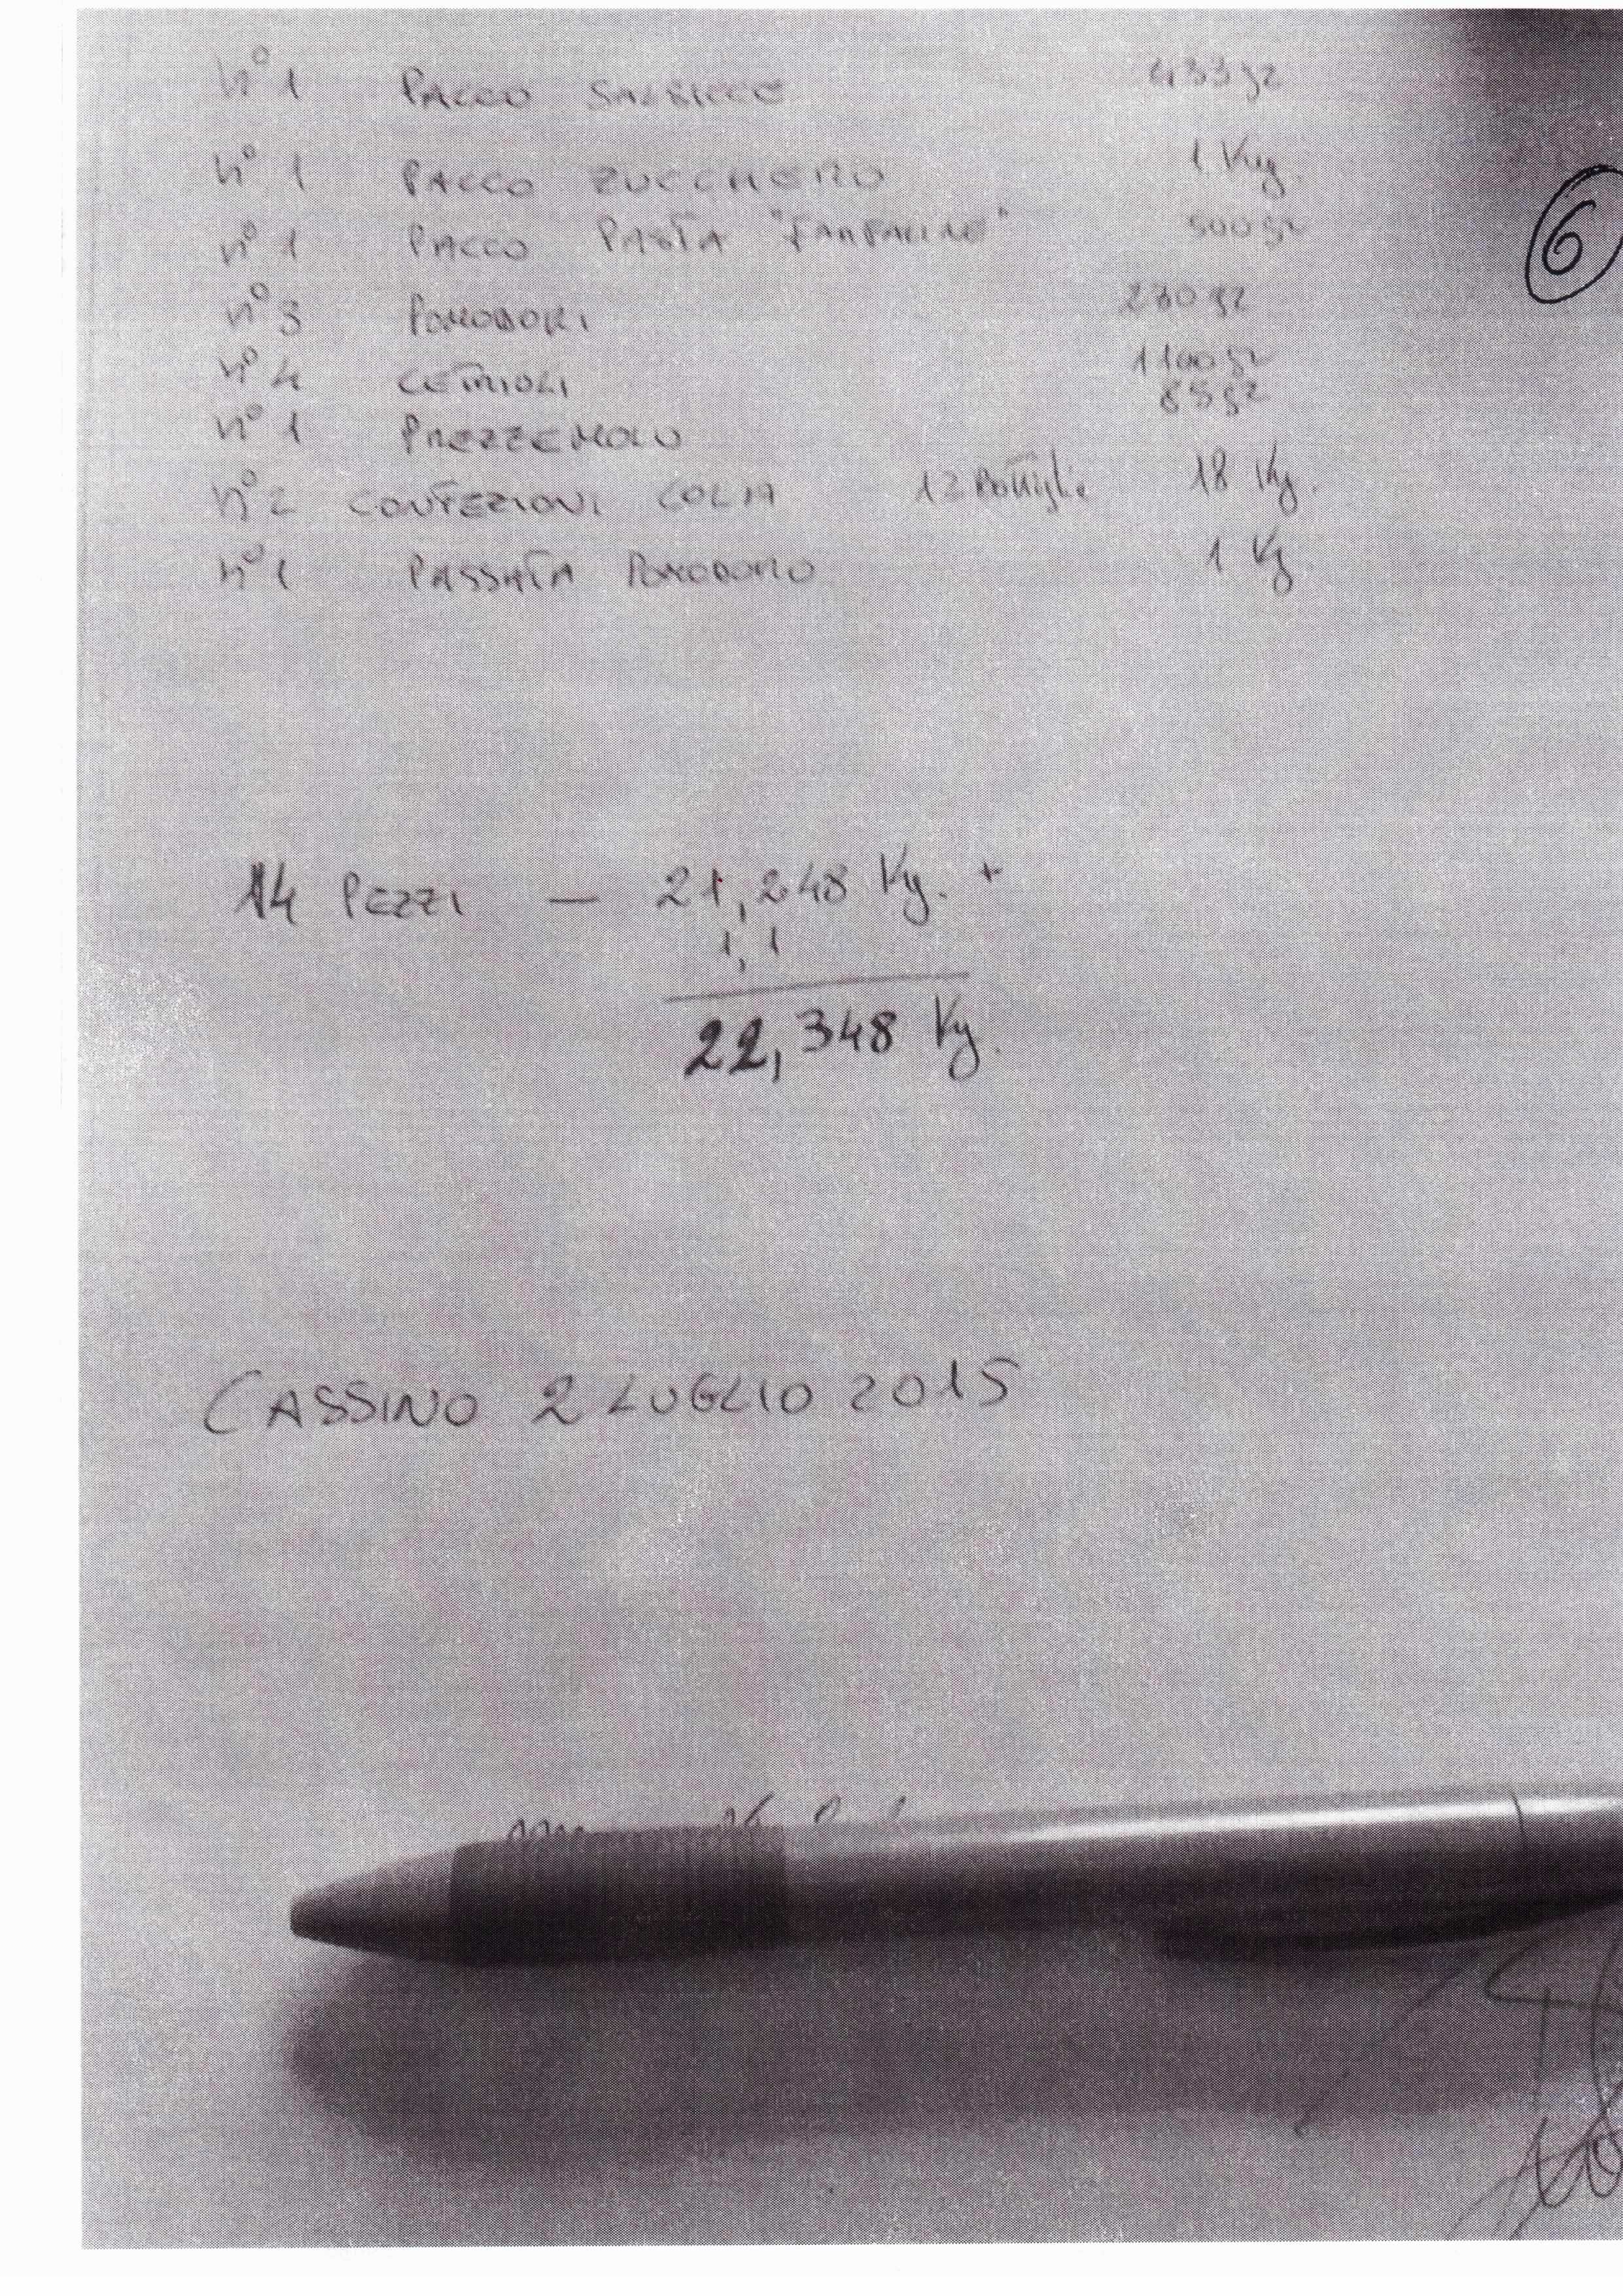 n° 1 PACCO SALSICCE 433 gr
n° 1 PACCO ZUCCHERO 1 Kg.
n° 1 PACCO PASTA "FARFALINE" 500 gr
n° 3 POMODORI 230 gr
n° 4 CETRIOLI 1100 gr
n° 1 PREZZEMOLO 85 gr
n° 2 CONFEZIONI COLIA 12 Bottiglie 18 Kg.
n° 1 PASSATA POMODORO 1 Kg
6
14 PEZZI — 21,248 Kg. +
1,1
22,348 Kg.
CASSINO 2 LUGLIO 2015